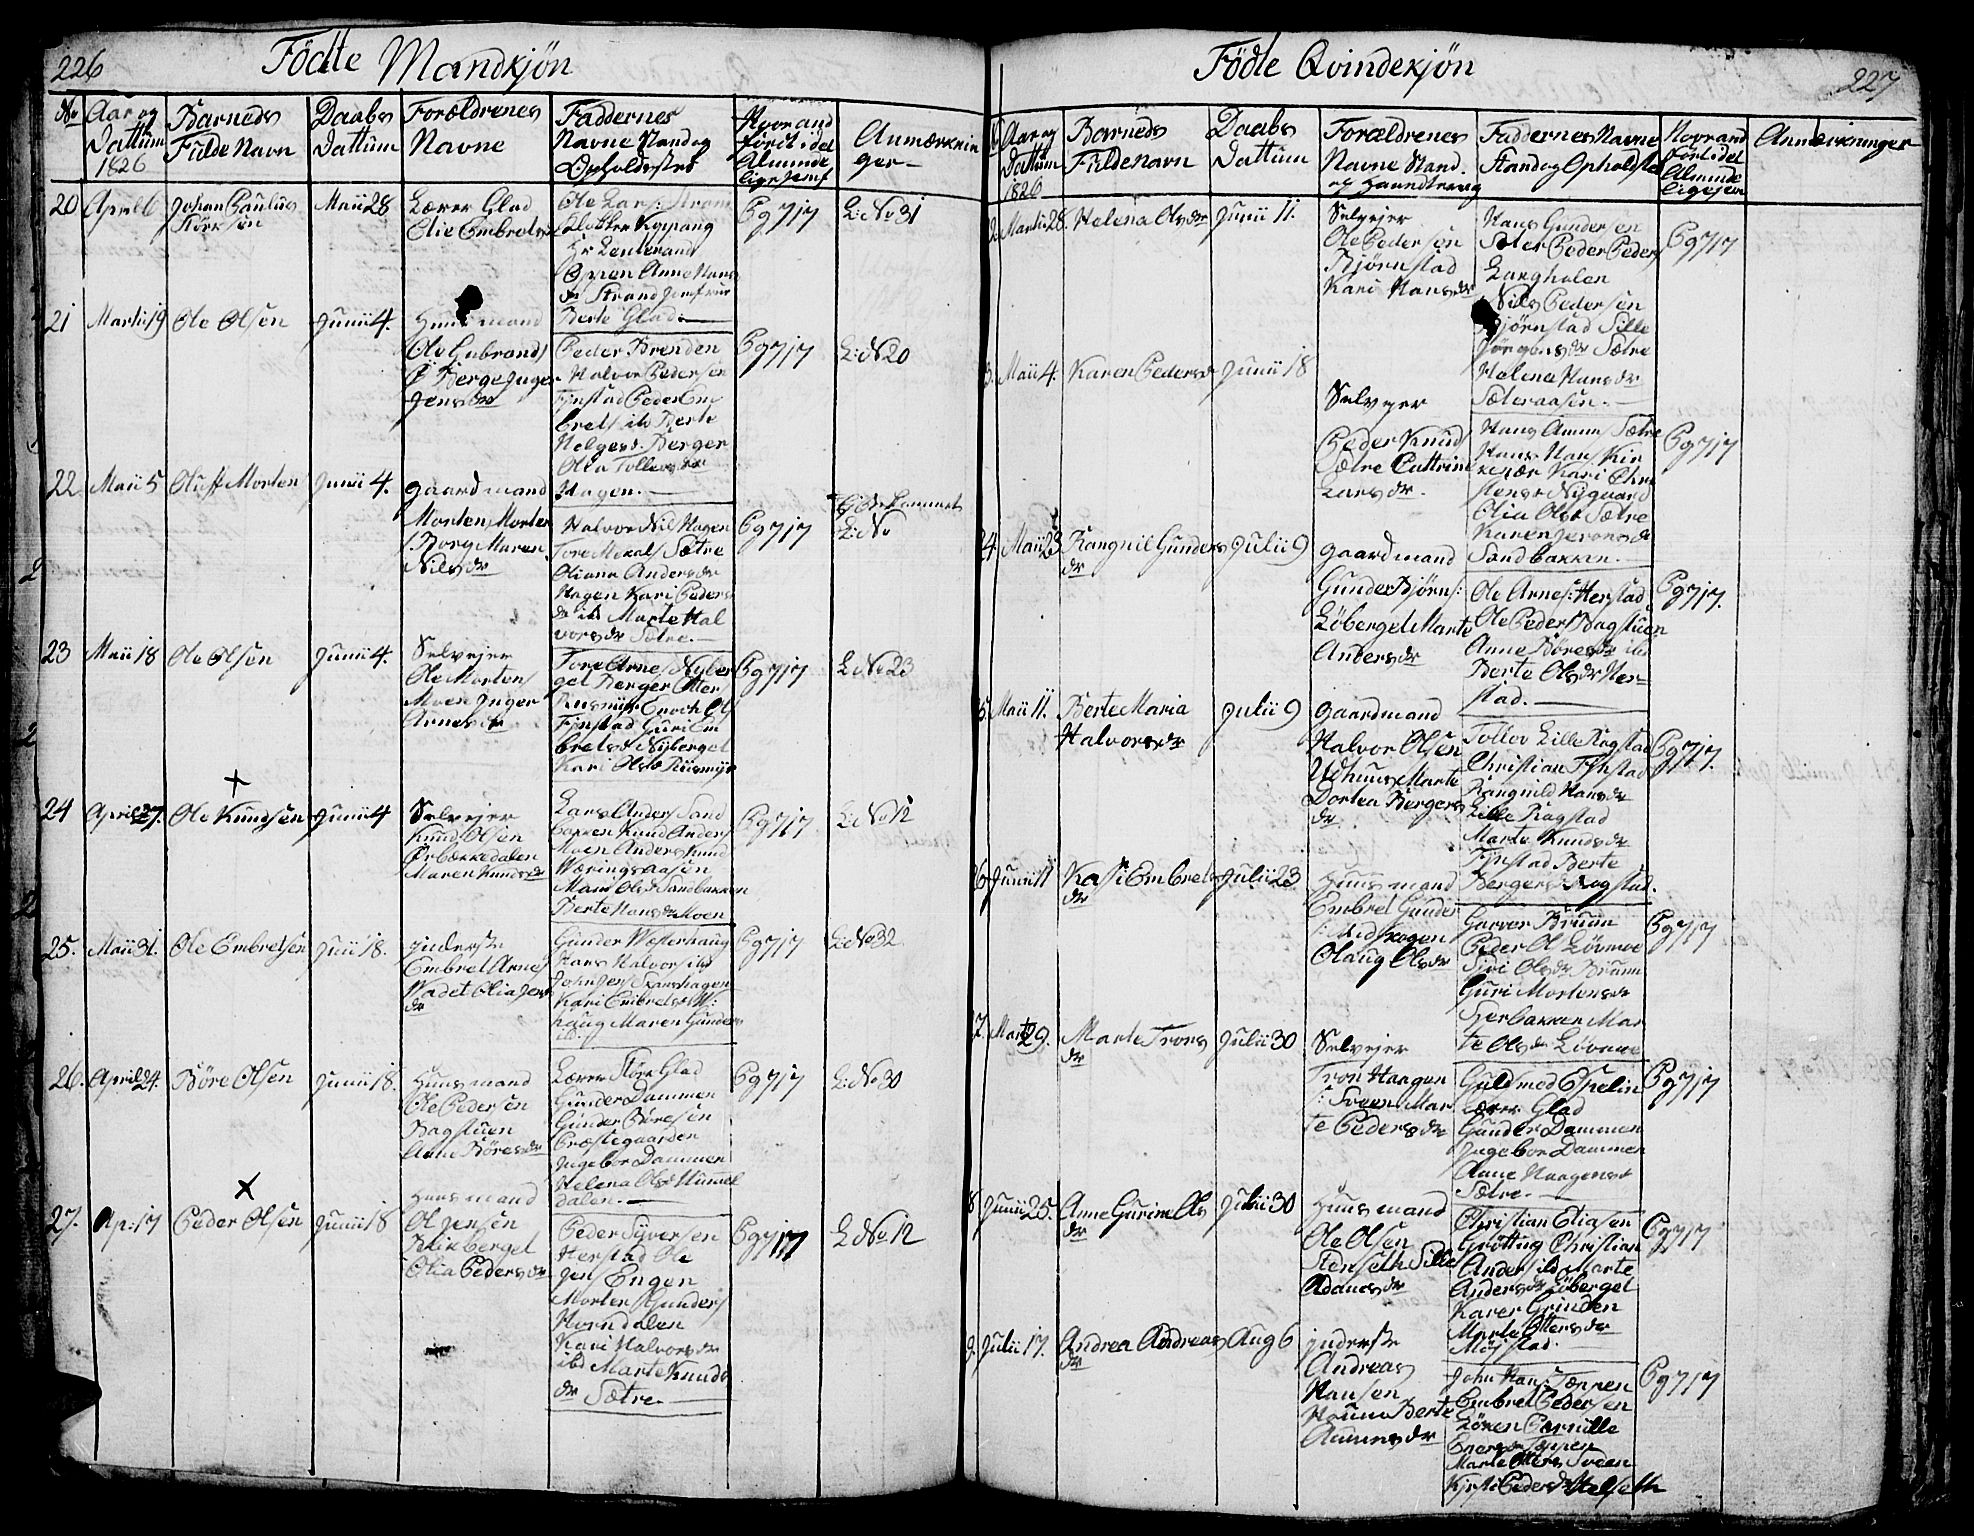 226
Födte Mandkjön
No
Aar og
Dattum
1826
Barneds
Fulde Navn
Daabs
Dattum
Forældrenes
Navne
Faddernes
Navne Stand og
Opholdssted
Hvor and
ført i det
Alminde
lige Jevnf
Anmærknin
ger
20
April 6
Johan Paulus
Störksen
Maii 28
Lærer Glad
Olie Embrets
Ole Lars: Strand
Klokker
Hr Leutenand
Oppen Anne Hans
dr Strand Jomfrue
Berte Glad
Pg 717
L: No 31
21
Martii 19
Ole Olsen
Junii 4.
Huusmand
Ole Gubrands
Berge Inger
Jensdr
Peder Brenden
Halvor Pedersen
Tynstad Peder Em
brets ib Berte
Helgesd. Berger
Olea Tollevsdr
Hagen.
Pg 717
L: No 20
22
Maii 5
Oluff Morten
Junii 4.
Gaardmand
Morten Morten
Borg Maren
Nilsdr
Halvor Nils Hagen
Tore Mikals Sætre
Oliana Andersdr
Hagen Kari Peders
dr ib Marte Hal
vorsdr Sætre.
Pg 717
L: No
23
Maii 18
Ole Olsen
Junii 4.
Selvejer
Ole Morten
Moen Inger
Arnesdr
Tore Arnes Nyber
get Berger Otter
Enoch Ols
Tynstad Guri Em
bretsd Nyberget
Kari Olsdr
Pg 717
L No 23
24
April 27.
Ole Knudsen
Junii 4
Selvejer
Knud Olsen
Ørbækkedalen
Maren Knudsdr
Lars Anders Sand
bakken Knud Anders
Moen Anders Knud
Wæringsaasen
Mari Olsd Sandbakken
Berte Hansdr Moen
Pg 717
L: No 12
25.
Maii 31.
Ole Embretsen
Junii 18.
Inderste
Embret Arnes
Wadet Olia Jens
dr
Gunder Westerhaug
Hans Halvors ib
John Jens Skarshagen
Kari Embretsd W:
haug Maren Gunders
ib.
Pg 717
L: No 32
26.
April 24.
Böre Olsen
Junii 18.
Huusmand
Ole Pedersen
Bagstuen
Anne Böresdr
Lærer Störk Glad
Gunder Dammen
Gunder Böresen
Præstegaarden
Ingebor Dammen
Helena Olsd Himmel
dalen.
Pg 717
L: No 30
27.
Ap: 17
Peder Olsen
Junii 18
Huusmand
Ol Jensen
Olia Pedersdr
Peder Syversen
Herstad Ole
Jens Engen
Morten Gunders
Horndalen
Kari Halvorsdr
ibd Marte Knuds
dr Sætre
Pg 717
L No 12
Födte Qvindekjön
227
Aar og
Dattum
1826
Barneds
Fulde Navn
Daabs
Dattum
Forældrenes
Navne Stand.
og Haandtering
Faddernes Navne
Stand og Opholdsted
Hvor and
ført i det
Alminde
lige Jevn
Anmerkninger
2.
Martii 28.
Helena Olsdr
Junii 11.
Selvejer
Ole Pedersen
Bjørnstad
Kari Hansdr
Hans Gundersen
Peder Peders
Langholen
Nils Pedersen
Bjørnstad Sille
Jörgensdr Sætre
Helena Hansdr
Sæteraasen.
Pg 717
3.
Maii 4.
Karen Pedersd
Junii 18
Selvejer
Peder Knuds
Sætre Cattrine
Larsdr.
Hans Amun Sætre
Hans Hans Kir
kenær Kari Chri
stensd Nygaard
Olia Olsd Sætre
Karen Jeronsd
Sandbakken.
Pg 717
24.
Maii 23
Rangnil Gunders
dr
Julii 9
Gaardmand
Gunder Bjørns:
Löberget Marte
Andersdr
Ole Arnes: Herstad
Ole Peders Bagstuen
Anne Böresdr ib
Berte Olsdr Her-
stad.
Pg 717.
5
Maii 11.
Berte Maria
Halvorsdr
Julii 9
Gaardmand
Halvor Olsen
Udhuus Marte
Dortea Bergers
dr
Tollov Lille Rogstad
Christian Tynstad
Rangnild Hansdr
Lille Rogstad
Marte Knudsdr
Tynstad Berte
Bergersd Rogstad.
Pg 717.
26
Junii 11
Kari Embrets
dr
Julii 23
Huusmand
Embret Gunder
Midskogen
Olaug Olsdr
Garver Bruun
Peder Ol Lövmoe
Siri Olsdr Bruun
Guri Mortensdr
Herbakken Mar
te Olsdr Lövmoe
Pg 717
7.
Marti 29.
Marte Trons
dr
Julii 30
Selvejer
Tron Haagen
Sveen Mar
te Pedersdr
Guldsmed Espelin
Lærer Glad
Gunder Dammen
Ingebor Dammen
Anne Haagensd
Sætre.
Pg 717
8
Junii 25.
Anne Gurine Ols
dr
Julii 30
Huusmand
Ole Olsen
Stenseth Sille
Adamsdr
Christian Eliasen
Gröttug Christian
Anders ib Marte
Andersdr Löberget
Karer Grinden
Marte Ottersdr
Møystad.
Pg 717
9.
Julii 17.
Andrea Andreas
dr
Aug 6
Inderste
Andreas
Hansen
Berte
Amunsdr
John Hans: Tæppen
Embret Pedersen
Lören Pernille
Enersdr Teppen
Marte Otters Sveen
Kjersti Pedersdr Stelseth
Pg 717